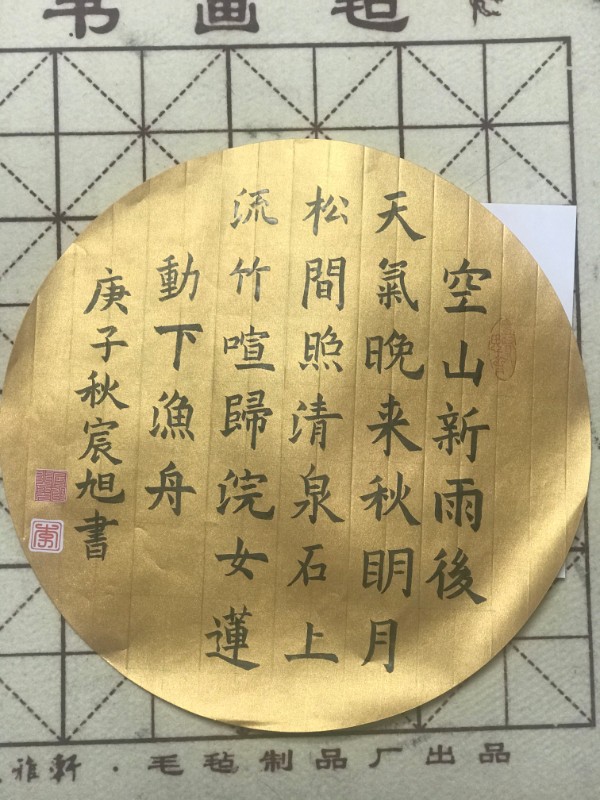 书画毡
空山新雨後
天氣晚来秋眀月
松間照清泉石上
流竹喧歸浣女蓮
動下漁舟
庚子秋宸旭書
雅軒·毛毡制品厂出品